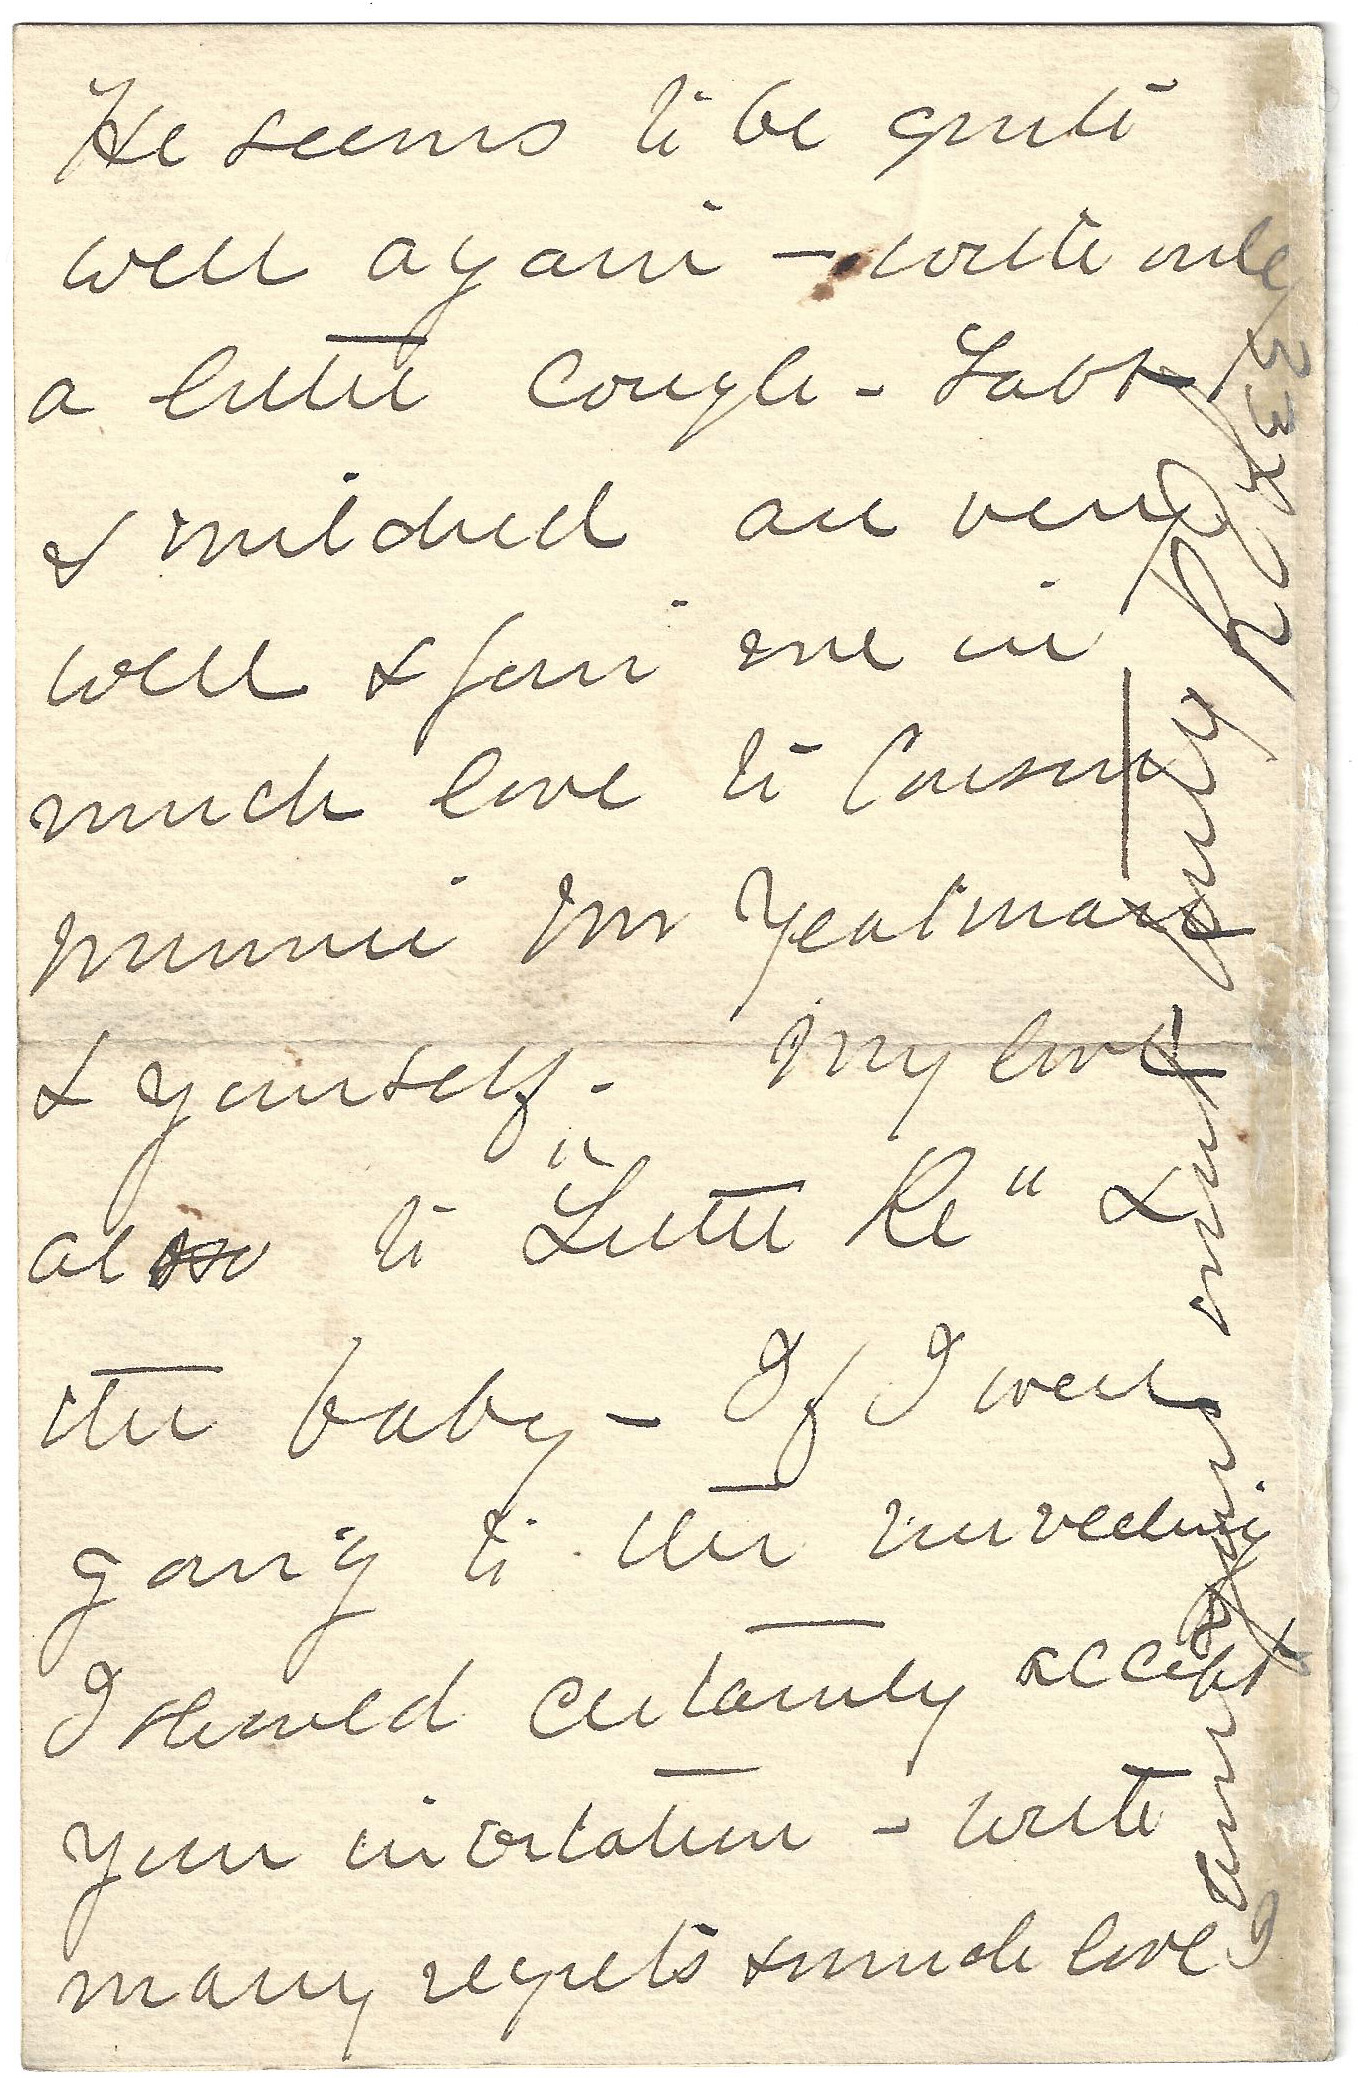 He seems to be quite
well again – with only
a little cough – Labt
& Mildred are very
well & join me in
much love to Cousin
Minnie Mr Yeatman
& yourself – My love
also to "Little Re" &
the baby – If I were
going to the unveiling
I should certainly accept
your invitation – with
many regrets & much love
I am your